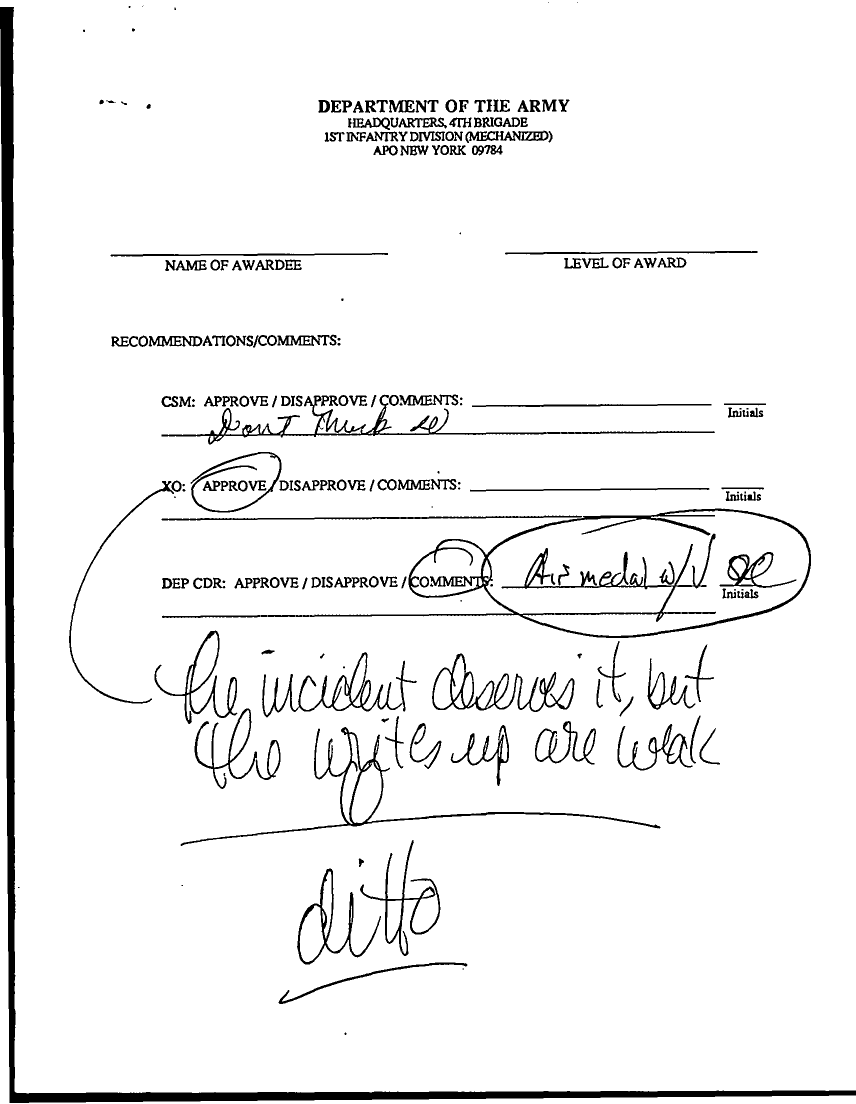 DEPARTMENT OF THE ARMY
HEADQUARTERS, 4TH BRIGADE
1ST INFANTRY DIVISION (MECHANIZED)
APO NEW YORK 09784
NAME OF AWARDEE
LEVEL OF AWARD
RECOMMENDATIONS/COMMENTS:
CSM: APPROVE / DISAPPROVE / COMMENTS:
Initials
Dont Think so
XO: APPROVE / DISAPPROVE / COMMENTS:
Initials
DEP CDR: APPROVE / DISAPPROVE / COMMENTS: Air medal w/V
Initials
the incident deserves it, but
the writes up are weak
ditto